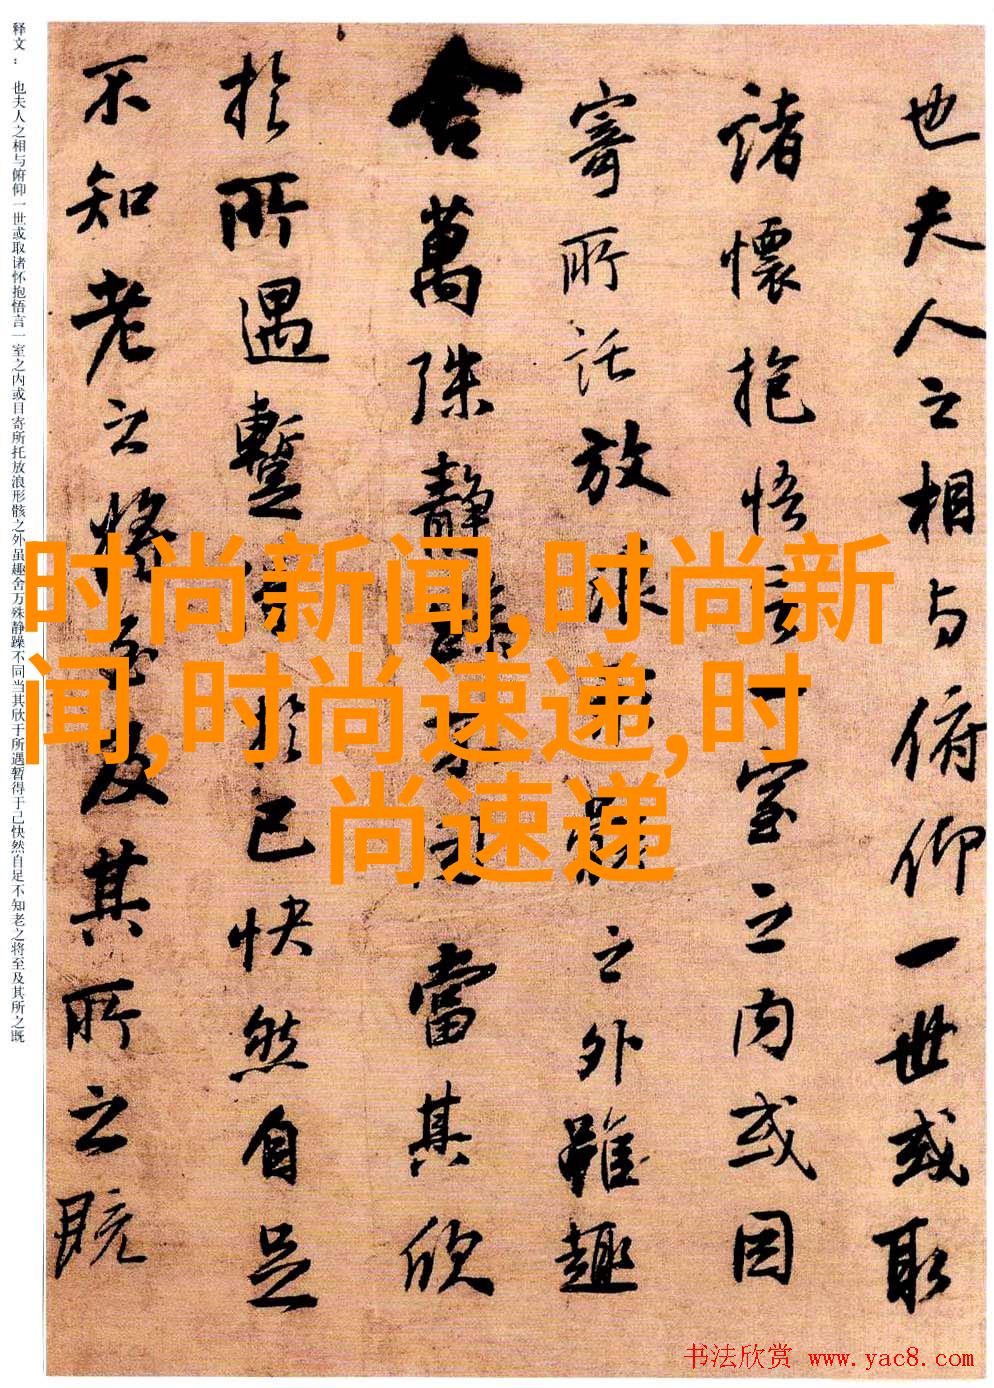 也夫人之相与俯仰一世或取
諸懷抱悟言一室之内或因
寄所託放浪形骸之外雖趣
舍萬殊靜躁不同當其欣
於所遇蹔得於己快然自足
不知老之將至及其所之既
释文：也夫人之相与俯仰一世或取诸怀抱悟言一室之内或目寄所托放浪形骸之外虽趣舍万殊静躁不同当其欣于所遇暂得于己快然自足不知老之将至及其所之既
时尚新闻,时尚新
闻,时尚速递,时
尚速递
书法欣赏 www.yac8.com